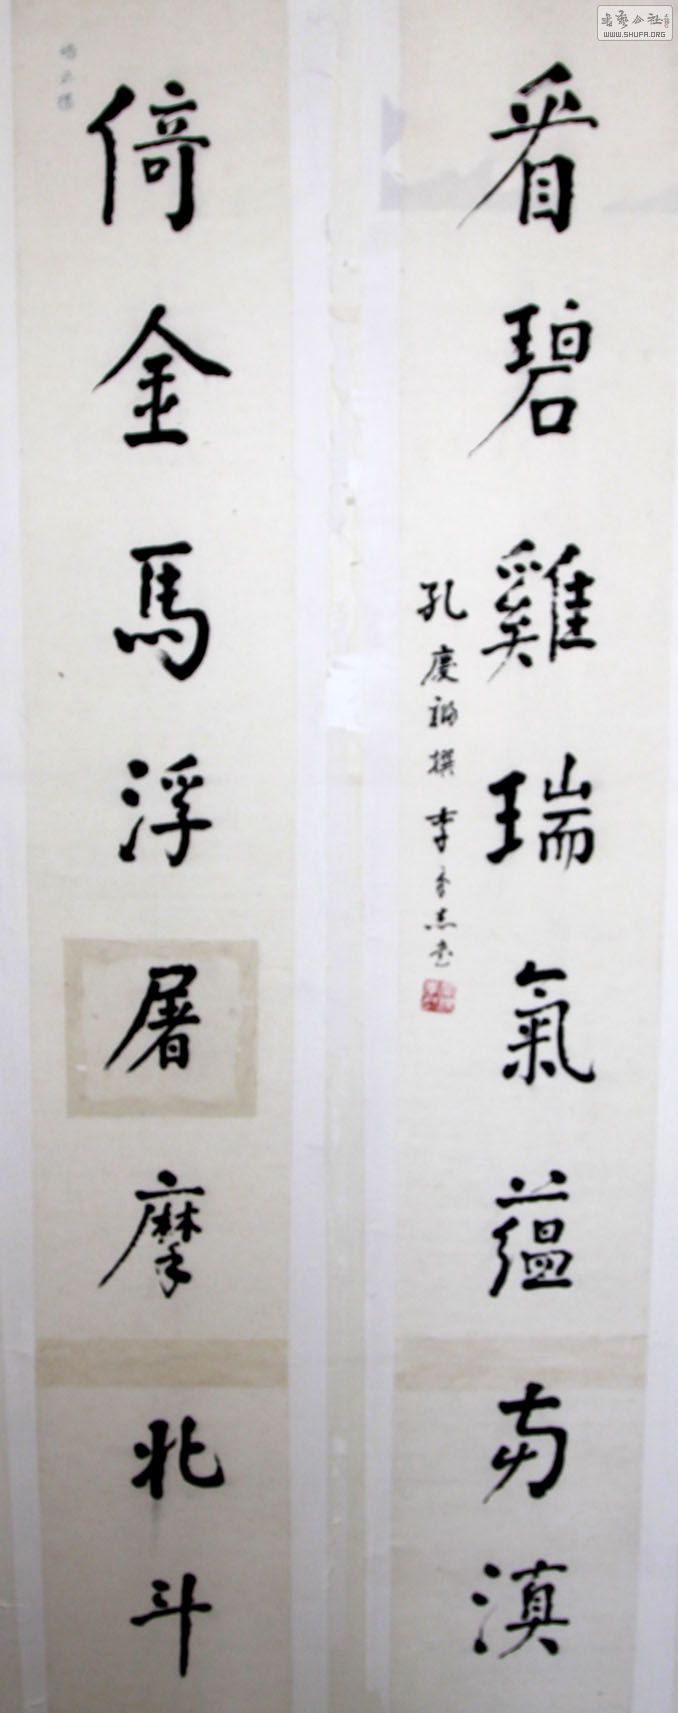 看碧雞瑞氣蘊南滇
孔慶福撰 李書
倚金馬浮屠摩北斗
書藝公社
WWW.SHUFA.ORG